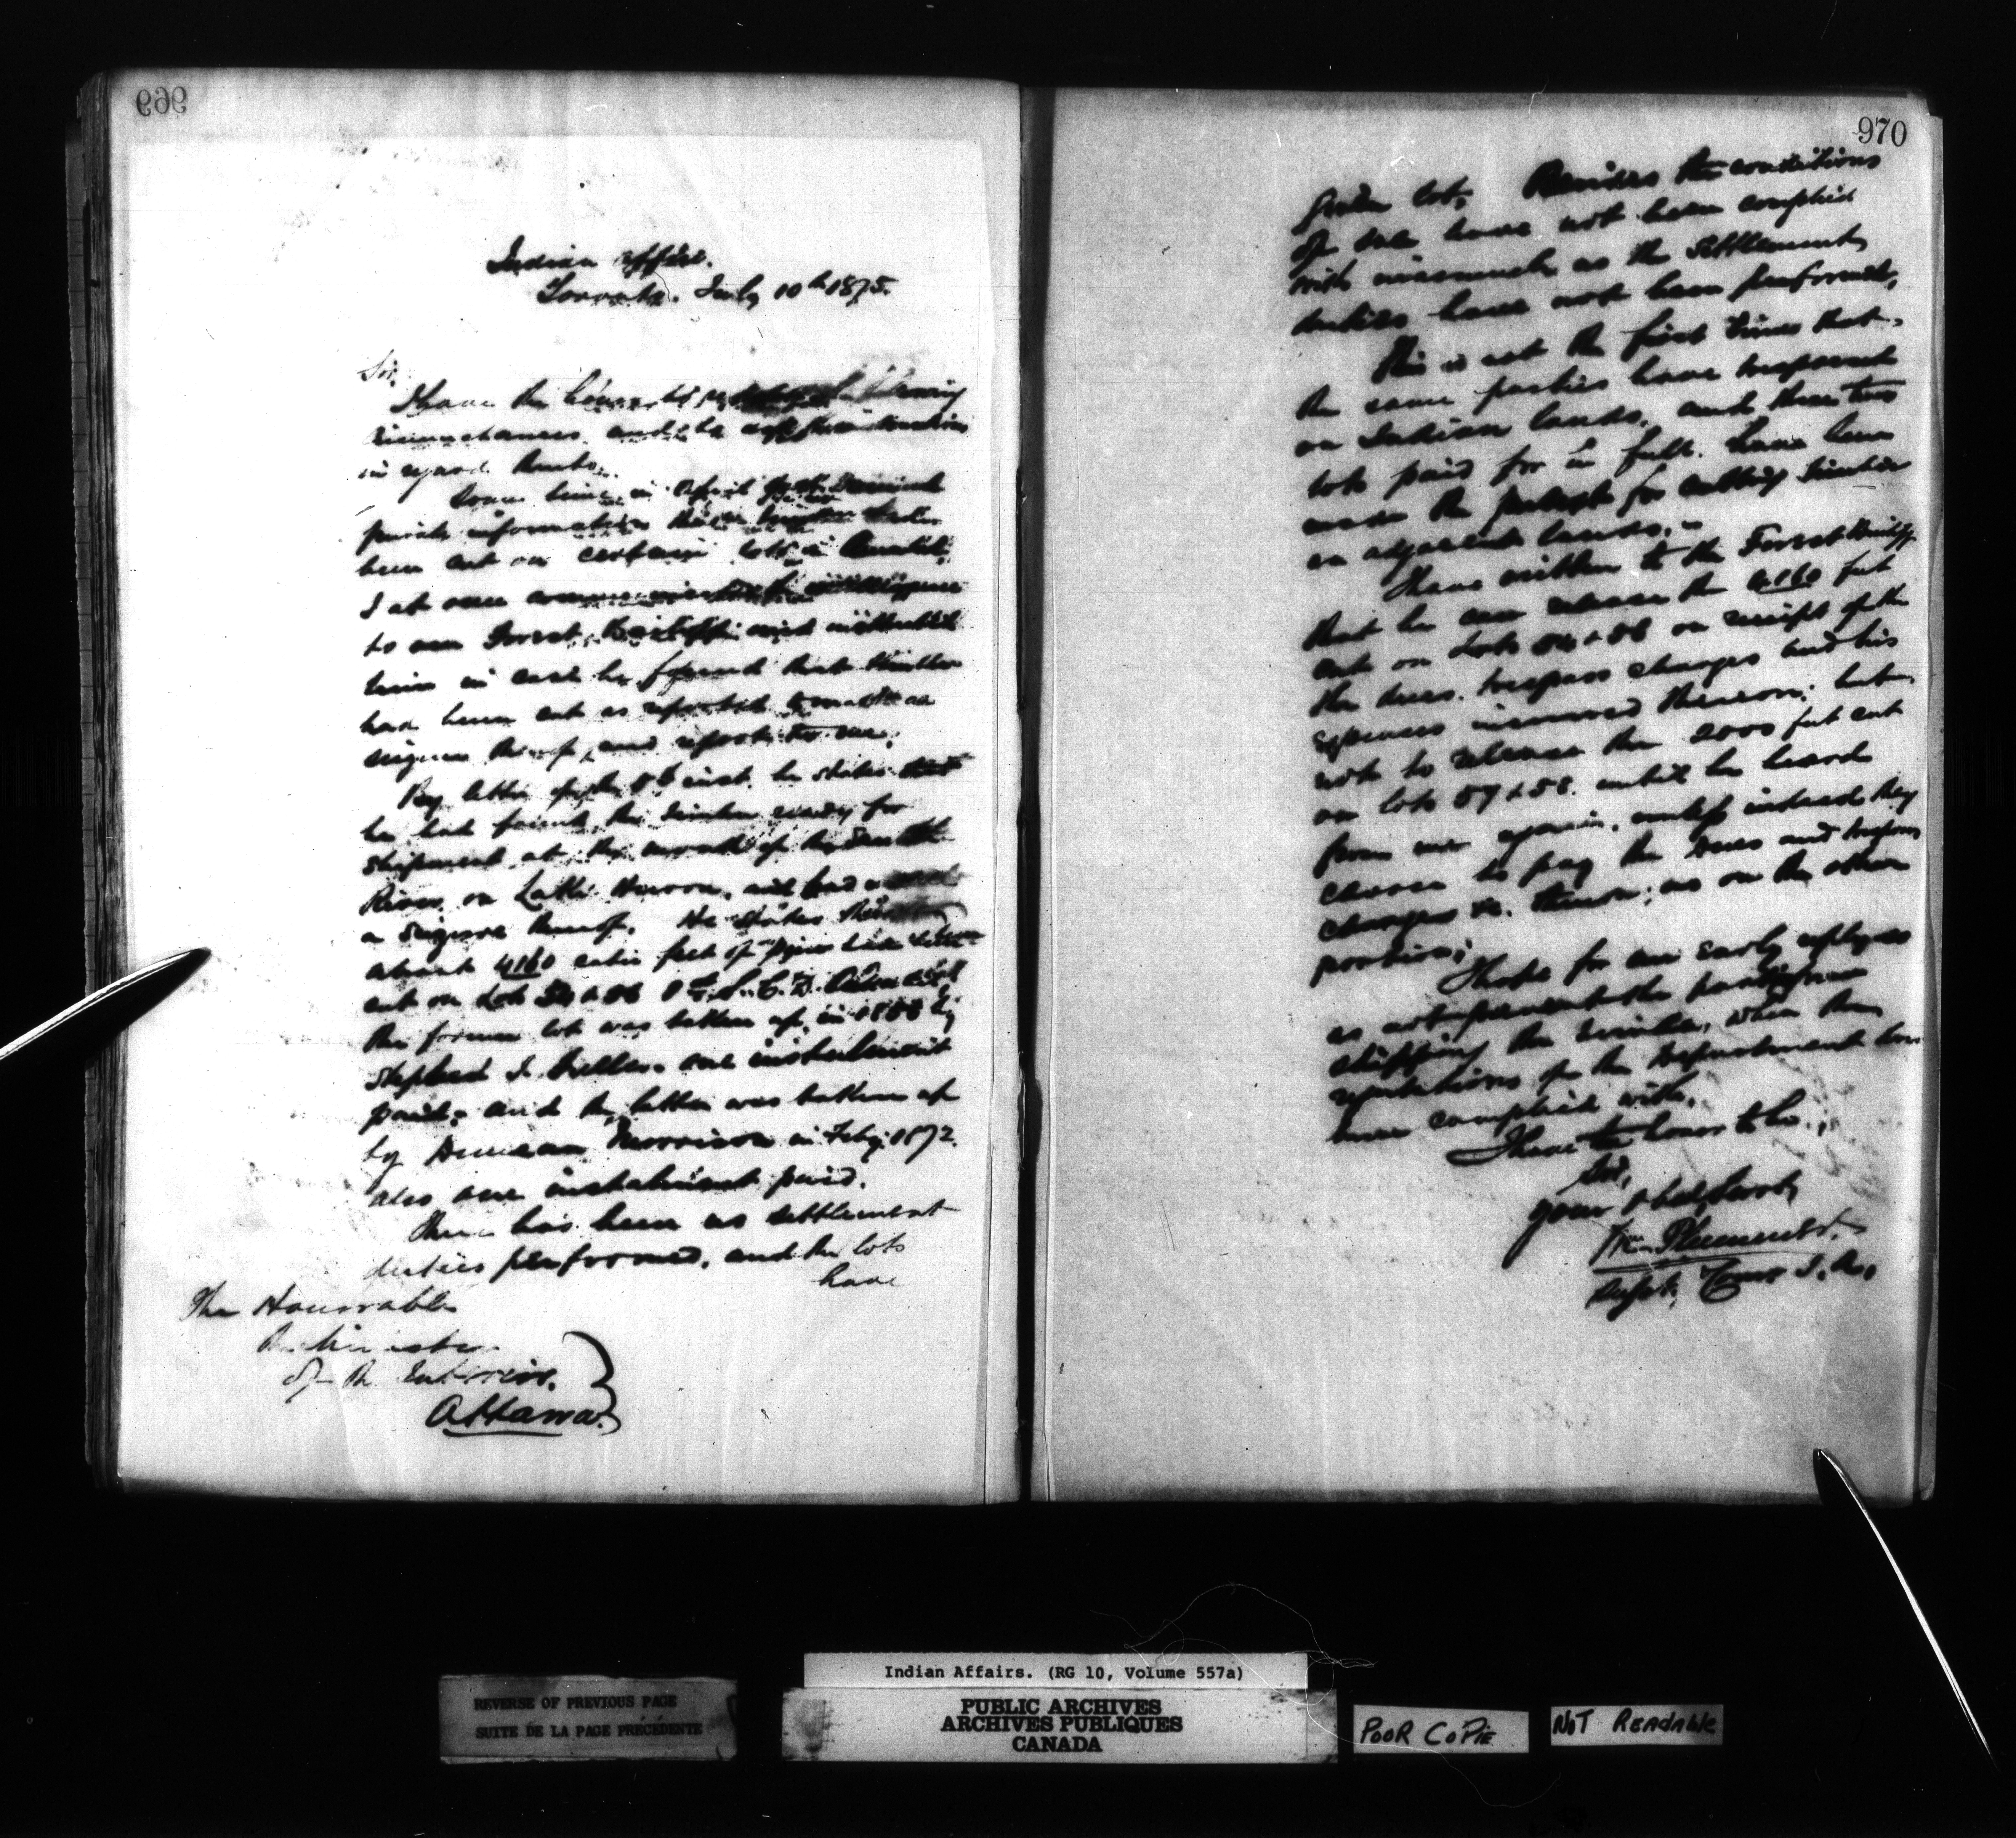 969
Indian Office.
Toronto. July 10th 1875.
Sir,
I have the honor to
circumstances and to ask for instructions
in regard thereto.
Some time in April
private information that
been cut on certain lots in
I at once intelligence
to our Forest Bailiff and instructed
him in case he found that timber
had been cut as reported to make a
seizure thereof, and report to me.
By letter of the inst. he states that
he had found the timber ready for
shipment at the mouth of the
River on Lake Huron, and had
a seizure thereof. He states
about 4160 cubic feet of pine
cut on Lots
the former lot was taken up in by
one instalment
paid; and the latter was taken up
by Duncan Morrison in Feby. 1872.
also one instalment paid.
There has been no settlement
duties performed, and the lots
have
The Honorable
The Minister
of the Interior.
Ottawa.
970
lot, Besides the conditions
of sale have not been complied
with inasmuch as the settlement
duties have not been performed.
This is not the first time that
the same parties have trespassed
on Indian lands, and these two
lots paid for in full. have been
made the pretext for cutting timber
on adjacent lands.
I have written to the Forest Bailiff
that he can release the 4160 feet
cut on Lots on receipt of the
the dues. trespass charges and his
expenses incurred thereon; but
not to release the 2000 feet cut
on lots 57 & 58. until he heard
from me again, unless instead they
choose to pay the dues and trespass
charges &c. thereon; as on the other
portion;
I hope for an early reply so
as not prevent the parties from
shipping the timber, when the
regulations of the Department have
been complied with.
I have the honor to be,
Sir,
your obed. Servt.
Wm Plummer.
Supt. Comr I. A.
Indian Affairs. (RG 10, Volume 557a)
REVERSE OF PREVIOUS PAGE
SUITE DE LA PAGE PRÉCÉDENTE
PUBLIC ARCHIVES
ARCHIVES PUBLIQUES
CANADA
POOR COPIE
NOT READABLE